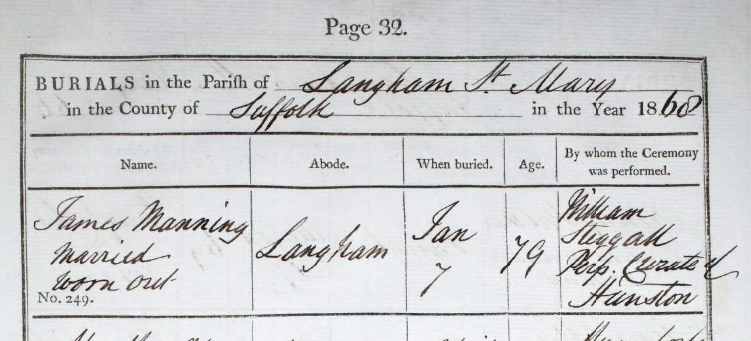 Page 32.
BURIALS in the Parish of Langham St Mary
in the County of Suffolk in the Year 1868
Name. Abode. When buried. Age. By whom the Ceremony was performed.
James Manning
Married
worn out
No. 249.
Langham
Jan
7
79
William
Steggall
Perp. Curate of
Hunston